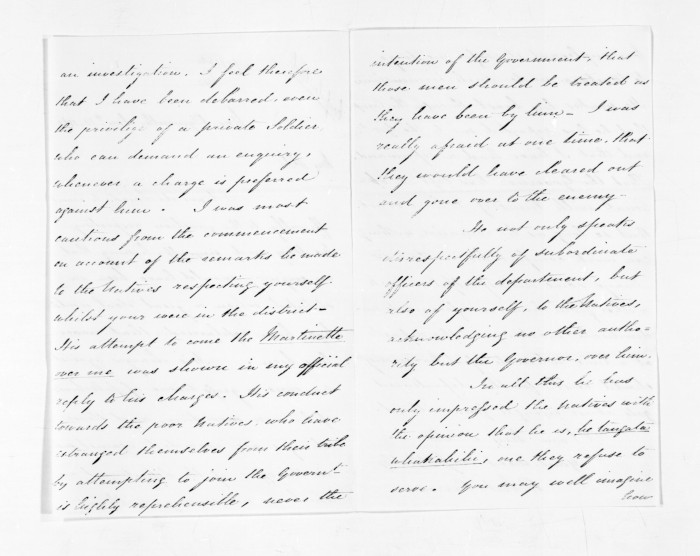 an investigation. I feel therefore
that I have been debarred, even
the privilege of a private Soldier
who can demand an enquiry,
whenever a charge is preferred
against him. I was most
cautious from the commencement
on account of the remarks he made
to the Natives respecting yourself
whilst your were in the district–
His attempt to come the Martinette
over me was shown in my official
reply to his charges. His conduct
towards the poor Natives who have
estranged themselves from their tribe
by attempting to join the Governt
is highly reprehensible, never the
intention of the Government, that
those men should be treated as
they have been by him– I was
really afraid at one time, that
they would have cleared out
and gone over to the enemy–
He not only speaks
disrespectfully of subordinate
officers of the department, but
also of yourself, to the Natives,
acknowledging no other autho-
rity but the Governor, over him.
In all this he has
only impressed the Natives with
the opinion that he is, he tangata
whakahihi, one they refuse to
serve. You may well imagine
how